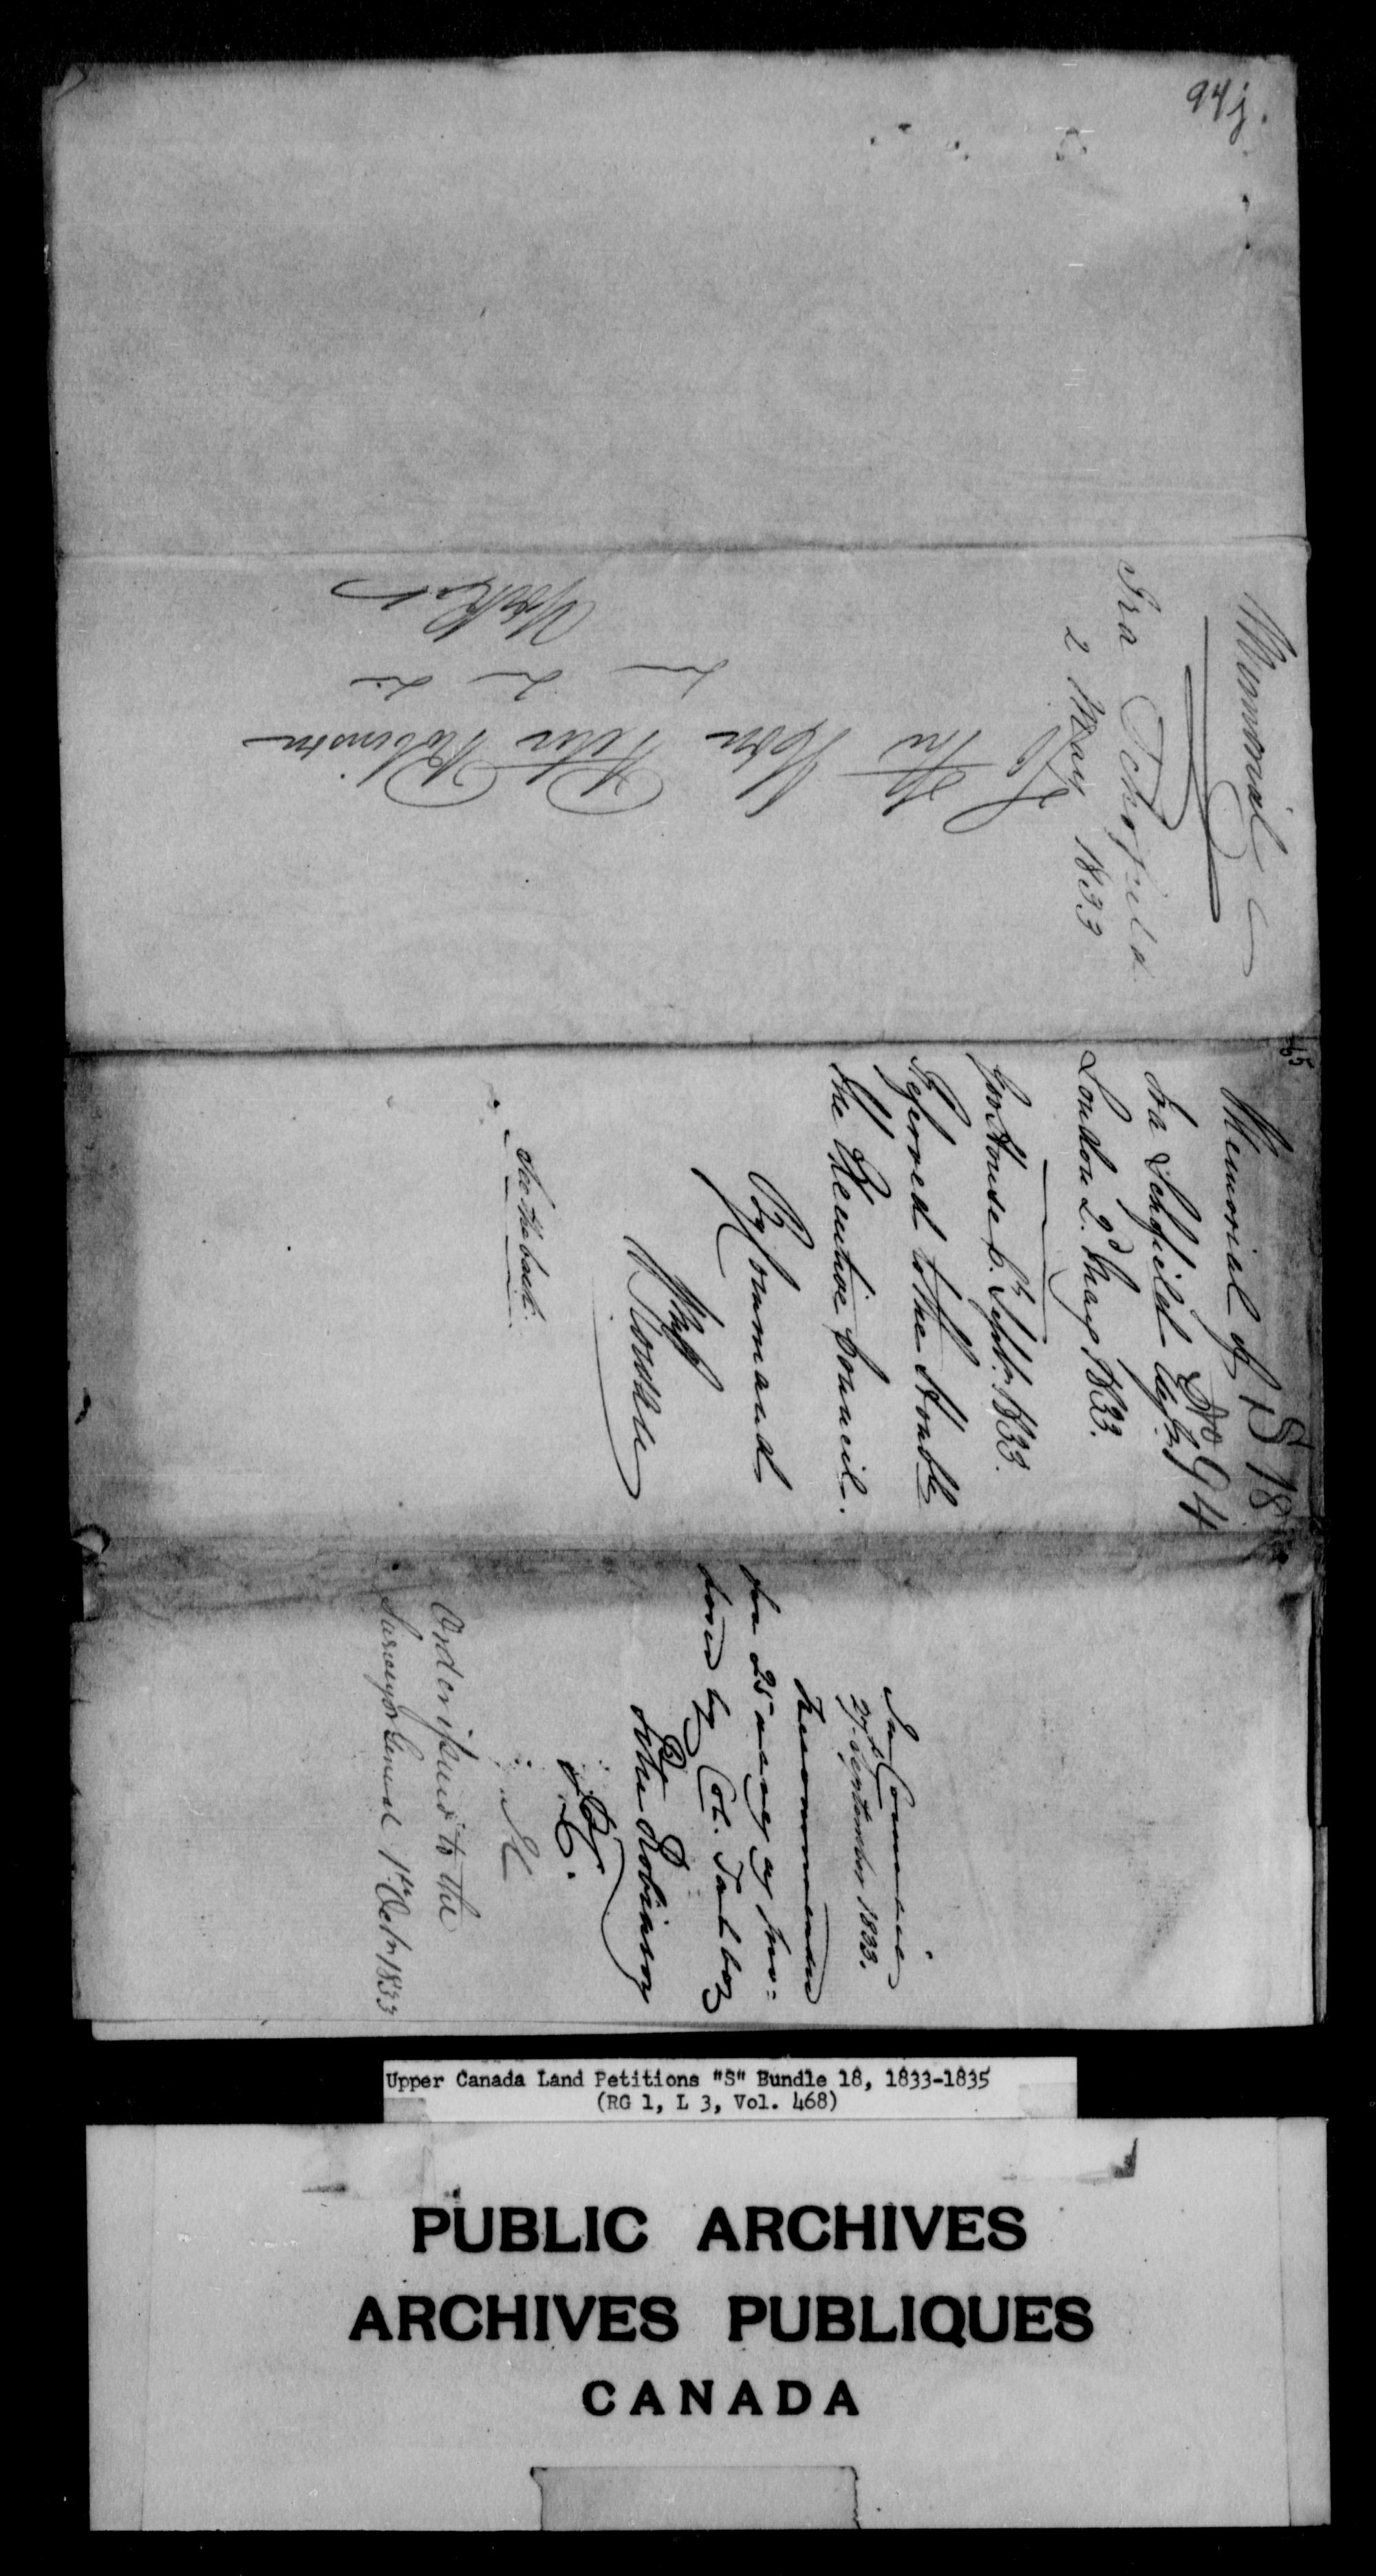 94j.
Memorial
Ira Schofield
2 May 1833
To
The Honr Peter Robinson
York
65
Memorial of
Ira Schofield Esqr.
London 2d. May 1833.
S 18
No 94
Govt House 6th. Septr. 1833.
Referred to the Honble
The Executive Council.
By Command
Wm Rowan
See the back.
In Council
27th September 1833.
Recommended
for 25
by Col. Talbot
P Robinson
P.C.
Order issued to the
Surveyor General 1st Octr 1833
Upper Canada Land Petitions "S" Bundle 18, 1833-1835
(RG 1, L 3, Vol. 468)
PUBLIC ARCHIVES
ARCHIVES PUBLIQUES
CANADA